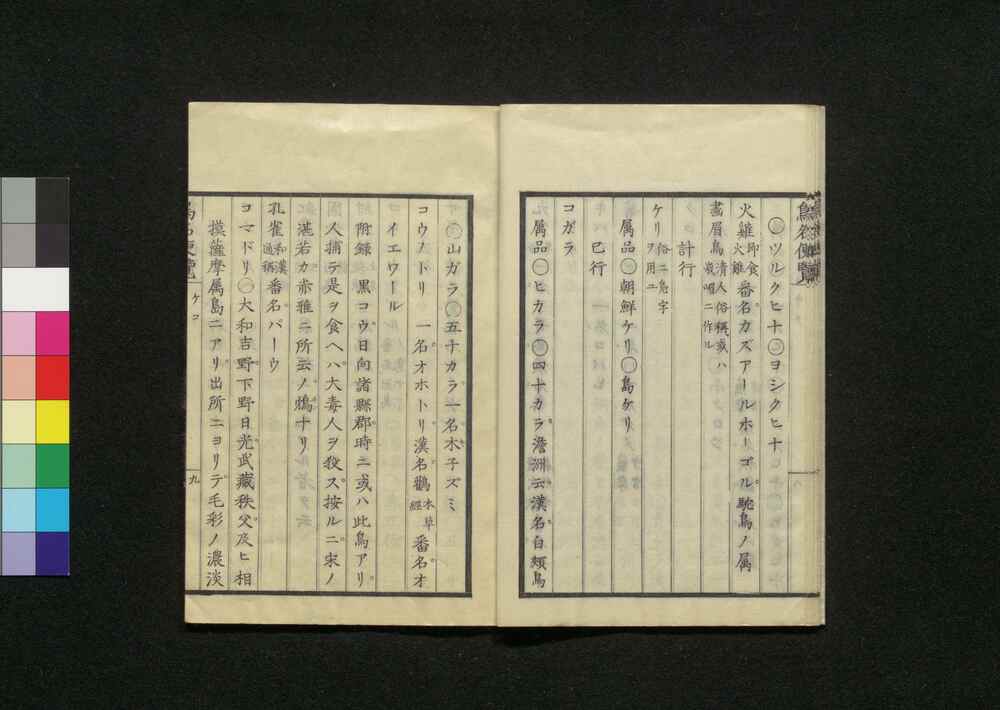 鳥名便覧
㊂ツルクヒナ㊃ヨシクヒナ
火雞 即食火雞 番名カズアールホーゴル駝鳥ノ属
畫眉鳥 清人俗稱或ハ嶺唱ニ作ル
計行
ケリ 俗ニ鳧字ヲ用ユ
属品㊀朝鮮ケリ㊁鳥ケリ
己行
コガラ
属品㊀ヒカラ㊁四十カラ澹洲云漢名白頬鳥
㊂山ガラ㊃五十カラ一名木子ズミ
コウノトリ 一名オホトリ漢名鸛 本草經 番名オ
イエワール
附録 黒コウ日向諸縣郡時ニ或ハ此鳥アリ
人捕テ是ヲ食ヘハ大毒人ヲ殺ス按ルニ宋ノ
湛若カ赤雅ニ所云ノ鴆ナリ
孔雀 和漢通稱 番名パーウ
コマドリ㊀大和吉野下野日光武藏秩父及ヒ相
摸薩摩属島ニアリ出所ニヨリテ毛彩ノ濃淡
鳥名便覧
ケコ
九